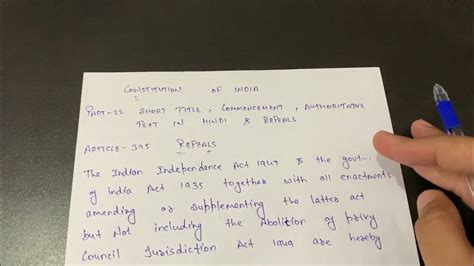 CONSTITUTION OF INDIA
PART-22 SHORT TITLE, COMMENCEMENT, AUTHORITATIVE
TEXT IN HINDI & REPEALS
ARTICLE-395 REPEALS
The Indian Independence Act 1947 & the govt...
of India Act 1935 together with all enactments
amending or supplementing the latter act
but Not including the Abolition of privy
Council Jurisdiction Act 1949 are hereby